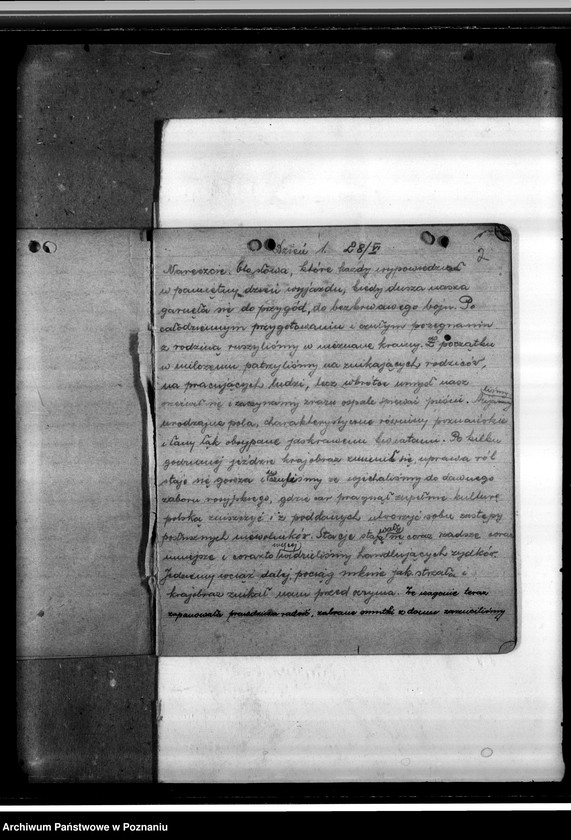 Dzień 1. 28/VI
2
Nareszcie. Oto słowa, które każdy wypowiedział
w pamiętny dzień wyjazdu, kiedy dusza nasza
garnęła się do przygód, do bezkrwawego boju. Po
całodziennym przygotowaniu i czułym pożegnaniu
z rodziną ruszyliśmy w nieznane krainy. Z początku
w milczeniu patrzyliśmy na znikających rodziców,
na pracujących ludzi, lecz wkrótce umysł nasz
i zaczynamy zrazu ospale śpiewać pieśni.
urodzajne pola, charakterystyczne równiny poznańskie
i łany łąk obsypane jaskrawemi kwiatami. Po kilku
godzinnej jeździe krajobraz zmienił się, uprawa ról
staje się gorsza i że wjechaliśmy do dawnego
zaboru rosyjskiego, gdzie car pragnął zupełnie kulturę
polską zniszczyć i z poddanych utworzyć sobie zastępy
posłusznych niewolników. Stacje stają się coraz rzadsze coraz
mniejsze i coraz to więcej widzieliśmy handlujących żydków.
Jedziemy wciąż dalej, pociąg mknie jak strzała i
krajobraz znikał nam przed oczyma. We wagonie teraz
zapanowała prawdziwa radość, zabrane smutki z domu zarzuciliśmy
Archiwum Państwowe w Poznaniu